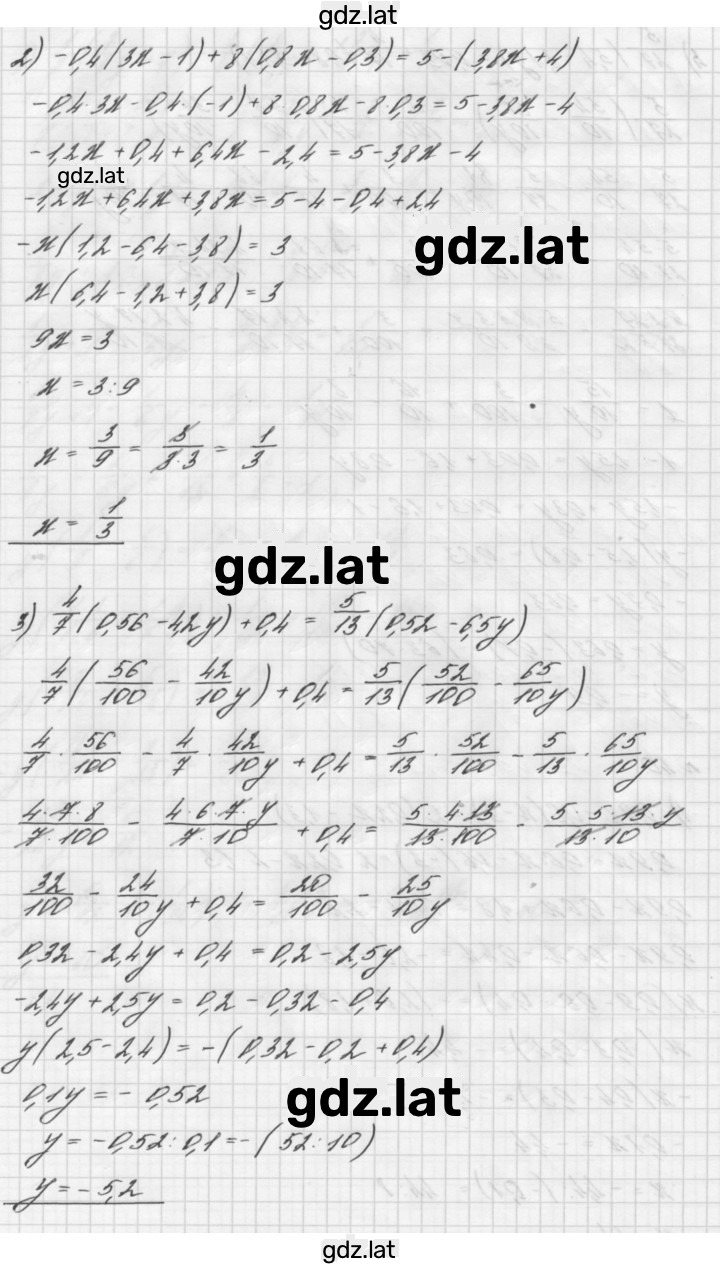 gdz.lat
2) -0,4(3x - 1) + 8(0,8x - 0,3) = 5 - (3,8x + 4)
-0,4·3x - 0,4·(-1) + 8·0,8x - 8·0,3 = 5 - 3,8x - 4
-1,2x + 0,4 + 6,4x - 2,4 = 5 - 3,8x - 4
gdz.lat
-1,2x + 6,4x + 3,8x = 5 - 4 - 0,4 + 2,4
-x(1,2 - 6,4 - 3,8) = 3
gdz.lat
x(6,4 - 1,2 + 3,8) = 3
9x = 3
x = 3:9
x = 3/9 = 3/(3·3) = 1/3
x = 1/3
gdz.lat
3) 4/7(0,56 - 4,2y) + 0,4 = 5/13(0,52 - 6,5y)
4/7(56/100 - 42/10y) + 0,4 = 5/13(52/100 - 65/10y)
4/7 · 56/100 - 4/7 · 42/10y + 0,4 = 5/13 · 52/100 - 5/13 · 65/10y
(4·7·8)/(7·100) - (4·6·7·y)/(7·10) + 0,4 = (5·4·13)/(13·100) - (5·5·13·y)/(13·10)
32/100 - 24/10y + 0,4 = 20/100 - 25/10y
0,32 - 2,4y + 0,4 = 0,2 - 2,5y
-2,4y + 2,5y = 0,2 - 0,32 - 0,4
y(2,5 - 2,4) = -(0,32 - 0,2 + 0,4)
0,1y = - 0,52
gdz.lat
y = -0,52 : 0,1 = -(52:10)
y = -5,2
gdz.lat